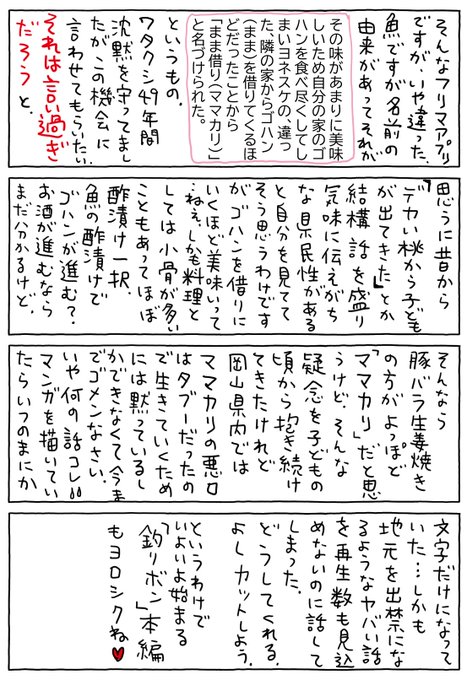 そんなフリマアプリ
ですが、いや違った、
魚ですが名前の
由来があってそれが
その味があまりに美味
しいため自分の家のゴ
ハンを食べ尽くしてし
まいヨネスケの、違っ
た、隣の家からゴハン
(まま)を借りてくるほ
どだったことから
「まま借り(ママカリ)」
と名づけられた。
というもの。
ワタクシ49年間
沈黙を守ってまし
たがこの機会に
言わせてもらいたい
それは言い過ぎ
だろうと。
思うに昔から
「デカい桃から子ども
が出てきた」とか
結構話を盛り
気味に伝えがち
な県民性がある
と自分を見てて
そう思うわけです
がゴハンを借りに
いくほど美味いって
ねぇ。しかも料理と
しては小骨が多い
こともあってほぼ
酢漬け一択。
魚の酢漬けで
ゴハンが進む?
お酒が進むなら
まだ分かるけど。
そんなら
豚バラ生姜焼き
の方がよっぽど
「ママカリ」だと思
うけど、そんな
疑念を子どもの
頃から抱き続け
てきたけれど
岡山県内では
ママカリの悪口
はタブーだったの
で生きていくため
には黙っているし
かできなくて今ま
でゴメンなさい。
いや何の話コレ!!
マンガを描いてい
たらいつのまにか
文字だけになって
いた…しかも
地元を出禁にな
るようなヤバい話
を再生数も見込
めないのに話して
しまった。
どうしてくれる。
よしカットしよう。
というわけで
いよいよ始まる
「釣リボン」本編
もヨロシクね♥